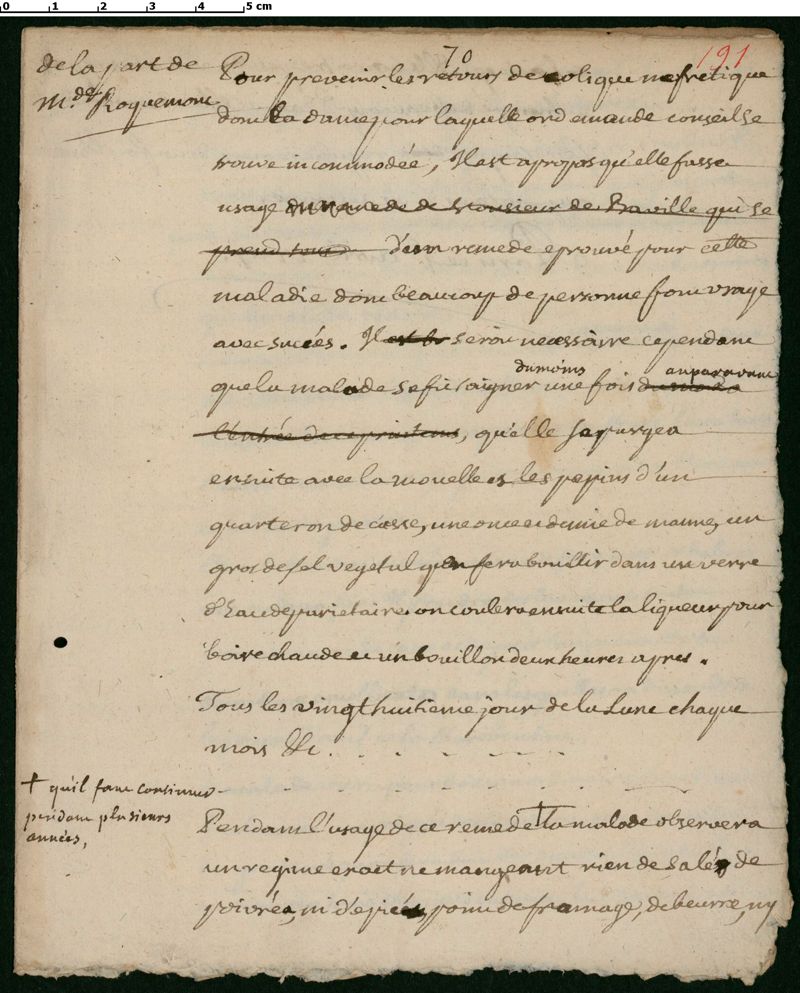 0 1 2 3 4 5 cm
70
191
de la part de
M.de Roquemont
Pour prevenir les retours de colique nefretique
dont la dame pour laquelle on demande conseil se
trouve incommodée, Il est apropos qu'elle fasse
usage du remede de Monsieur de Baville qui se
prend tous d'un remede eprouvé pour cette
maladie dont beaucoup de personne font usage
avec succés. Il est bo seroit necessaire cependant
dumoins auparavant
que la malade se fit saigner une fois
l'entrée de ce printems, qu'elle se purgea
ensuite avec la mouelle et les pepins d'un
quarteron de casse, une once et demie de manne, un
gros de sel vegetal qu'on fera bouillir dans un verre
d'Eau de parietaire. on coulera ensuite la liqueur pour
boire chaude et un bouillon deux heures apres.
Tous les vingt huitieme jour de la Lune chaque
mois &c. . . . . . . .
+ qu'il faut continuer
pendant plusieurs
années,
Pendant l'usage de ce remede + la malade observera
un regime exact ne mangeant rien de salé, de
poivré, ni d'epicé, point de fromage, de beurre, ny